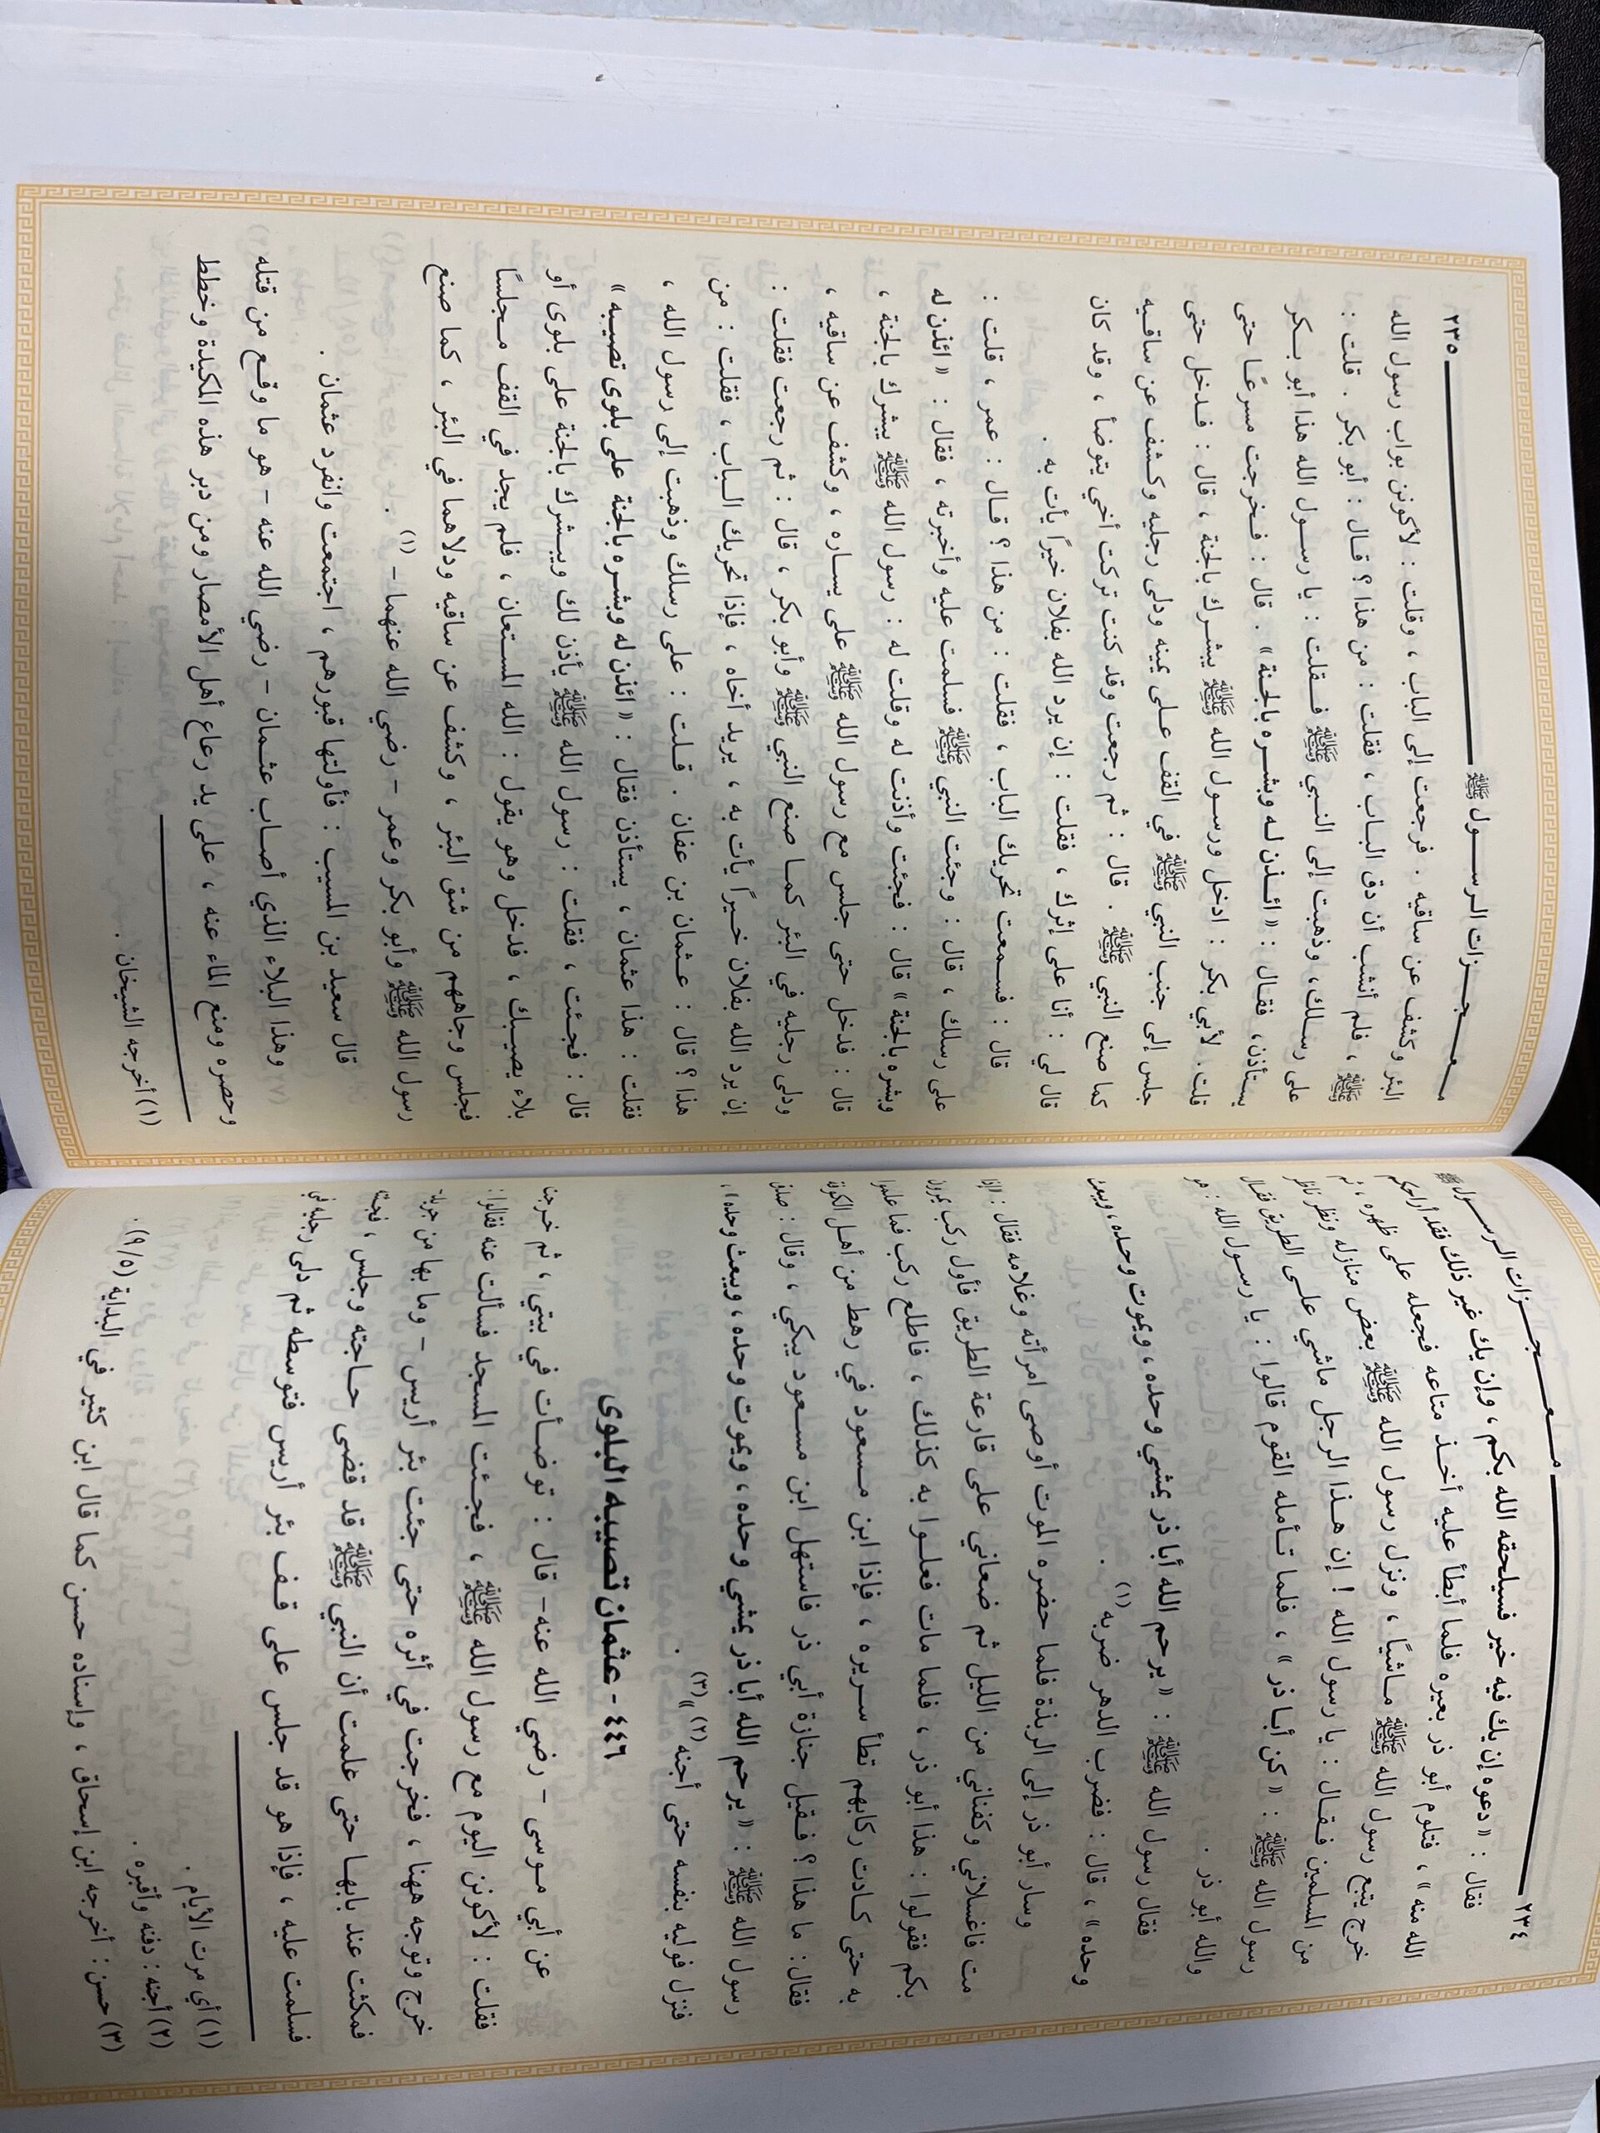 ٢٣٤
معـجـزات الرسـول ﷺ
فقال : « دعوه إن يك فيه خير فسيلحقه الله بكم ، وإن يك غير ذلك فقد أراحكم
الله منه » ، فتلوم أبو ذر بعيره فلما أبطأ عليه أخذ متاعه فجعله على ظهره ، ثم
خرج يتبع رسول الله ﷺ ماشيًا ، ونزل رسول الله ﷺ بعض منازله ونظر ناظر
من المسلمين فقال : يا رسول الله ! إن هذا الرجل ماشي على الطريق فقال
رسول الله ﷺ : « كن أبا ذر » ، فلما تأمله القوم قالوا : يا رسول الله : هو
والله أبو ذر .
فقال رسول الله ﷺ : « يرحم الله أبا ذر يمشي وحده ، ويموت وحده ، ويبعث
وحده » ، قال : فضرب الدهر ضربه (١) .
وسار أبو ذر إلى الربذة فلما حضره الموت أوصى امرأته وغلامه فقال : إذا
مت فاغسلاني وكفناني من الليل ثم ضعاني على قارعة الطريق فأول ركب يمرون
بكم فقولوا : هذا أبو ذر ، فلما مات فعلوا به كذلك ، فاطلع ركب فما علموا
به حتى كادت ركابهم تطأ سريره ، فإذا ابن مسعود في رهط من أهل الكوفة
فقال : ما هذا ؟ فقيل جنازة أبي ذر فاستهل ابن مسعود يبكي ، وقال : صدق
رسول الله ﷺ : « يرحم الله أبا ذر يمشي وحده ، ويموت وحده ، ويبعث وحده » ،
فنزل فوليه بنفسه حتى أجنه (٢) (٣) .
٤٤٦ - عثمان تصيبه البلوى
عن أبي موسى - رضي الله عنه - قال : توضأت في بيتي ، ثم خرجت
فقلت : لأكونن اليوم مع رسول الله ﷺ ، فجئت المسجد فسألت عنه فقالوا :
خرج وتوجه ههنا ، فخرجت في أثره حتى جئت بئر أريس - وما بها من جريد -
فمكثت عند بابها حتى علمت أن النبي ﷺ قد قضى حاجته وجلس ، فجئت
فسلمت عليه ، فإذا هو قد جلس على قف بئر أريس فتوسطه ثم دلى رجليه في
(١) أي مرت الأيام .
(٢) أجنه : دفنه وأقبره .
(٣) حسن : أخرجه ابن إسحاق ، وإسناده حسن كما قال ابن كثير في البداية (٩/٥) .
معـجـزات الرسـول ﷺ
٢٣٥
البئر وكشف عن ساقيه . فرجعت إلى الباب ، وقلت : لأكونن بواب رسول الله
ﷺ ، فلم أنشب أن دق الباب ، فقلت : من هذا ؟ قال : أبو بكر . قلت :
على رسلك ، وذهبت إلى النبي ﷺ فقلت : يا رسول الله هذا أبو بكر
يستأذن ، فقال : « ائذن له وبشره بالجنة » . قال : فخرجت مسرعًا حتى
قلت . لأبي بكر : ادخل ورسول الله ﷺ يبشرك بالجنة ، قال : فدخل حتى
جلس إلى جنب النبي ﷺ في القف على يمينه ودلى رجليه وكشف عن ساقيه
كما صنع النبي ﷺ . قال : ثم رجعت وقد كنت تركت أخي يتوضأ ، وقد كان
قال لي : أنا على إثرك ، فقلت : إن يرد الله بفلان خيرًا يأت به .
قال : فسمعت تحريك الباب ، فقلت : من هذا ؟ قال : عمر ، قلت :
على رسلك ، قال : وجئت النبي ﷺ فسلمت عليه وأخبرته ، فقال : « ائذن له
وبشره بالجنة » قال : فجئت وأذنت له وقلت له : رسول الله ﷺ يبشرك بالجنة ،
قال : فدخل حتى جلس مع رسول الله ﷺ على يساره ، وكشف عن ساقيه ،
ودلى رجليه في البئر كما صنع النبي ﷺ وأبو بكر ، قال : ثم رجعت فقلت :
إن يرد الله بفلان خيرًا يأت به ، يريد أخاه ، فإذا تحريك الباب ، فقلت : من
هذا ؟ قال : عثمان بن عفان . قلت : على رسلك وذهبت إلى رسول الله ،
فقلت : هذا عثمان ، يستأذن فقال : « ائذن له وبشره بالجنة على بلوى تصيبه »
قال : فجئت ، فقلت : رسول الله ﷺ يأذن لك ويبشرك بالجنة على بلوى أو
بلاء يصيبك ، فدخل وهو يقول : الله المستعان ، فلم يجد في القف مجلسًا
فجلس وجاههم من شق البئر ، وكشف عن ساقيه ودلاهما في البئر ، كما صنع
رسول الله ﷺ وأبو بكر وعمر - رضي الله عنهما - (١) .
قال سعيد بن المسيب : فأولتها قبورهم ، اجتمعت وانفرد عثمان .
وهذا البلاء الذي أصاب عثمان - رضي الله عنه - هو ما وقع من قتله
وحصره ومنع الماء عنه ، على يد رعاع أهل الأمصار ومن دبر هذه المكيدة وخطط
(١) أخرجه الشيخان .